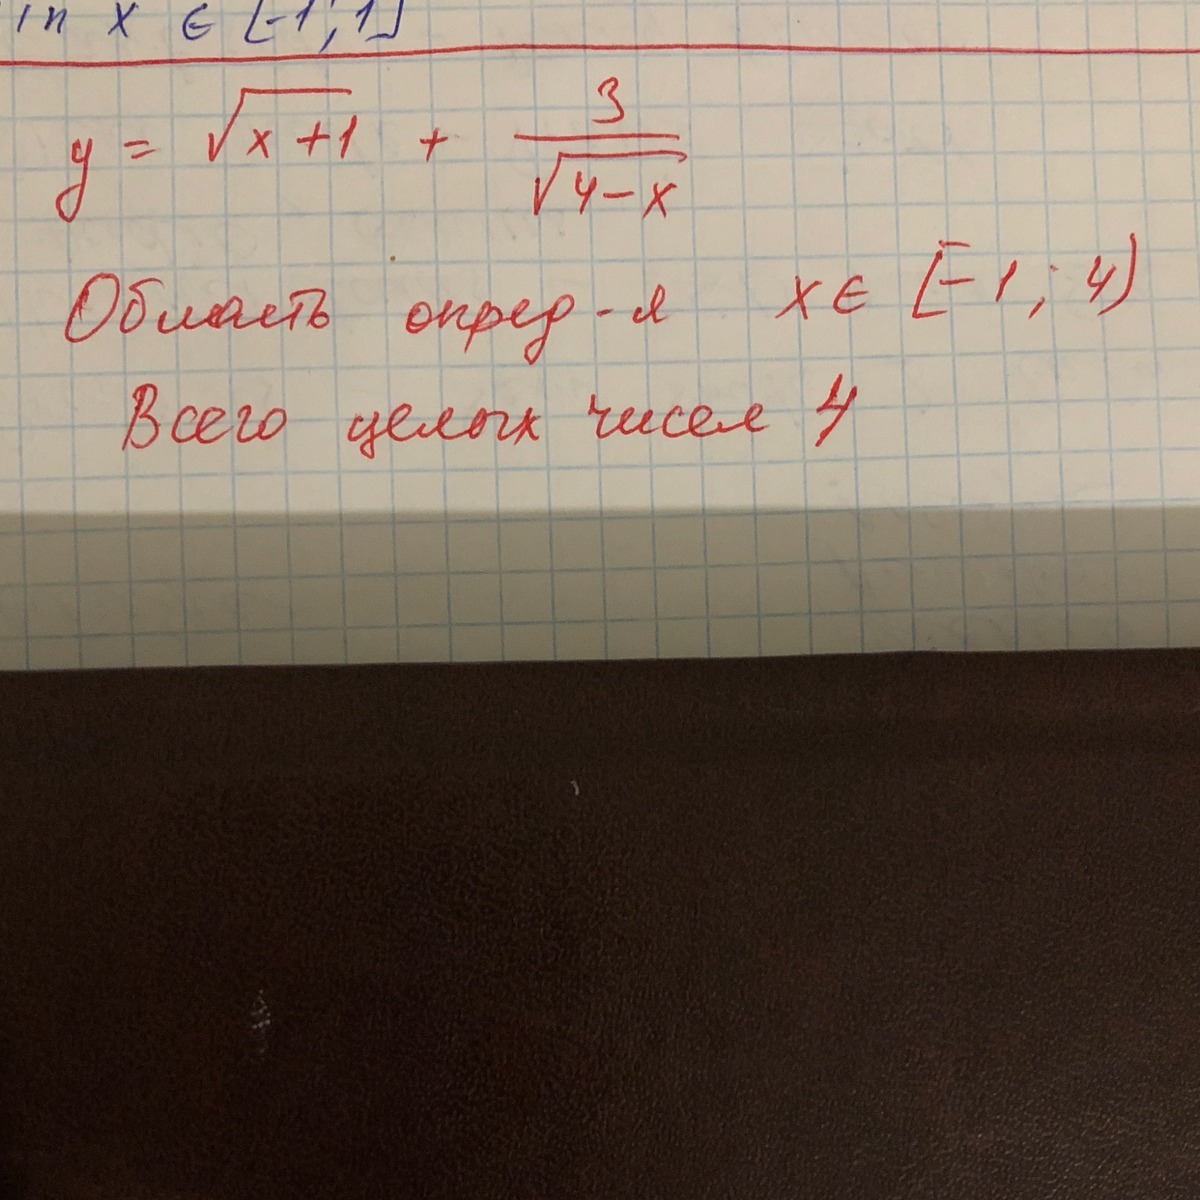 in x ∈ [-1; 1]
y = √x+1 + 3/√4-x
Область опред-я x ∈ [-1; 4)
Всего целых чисел 4